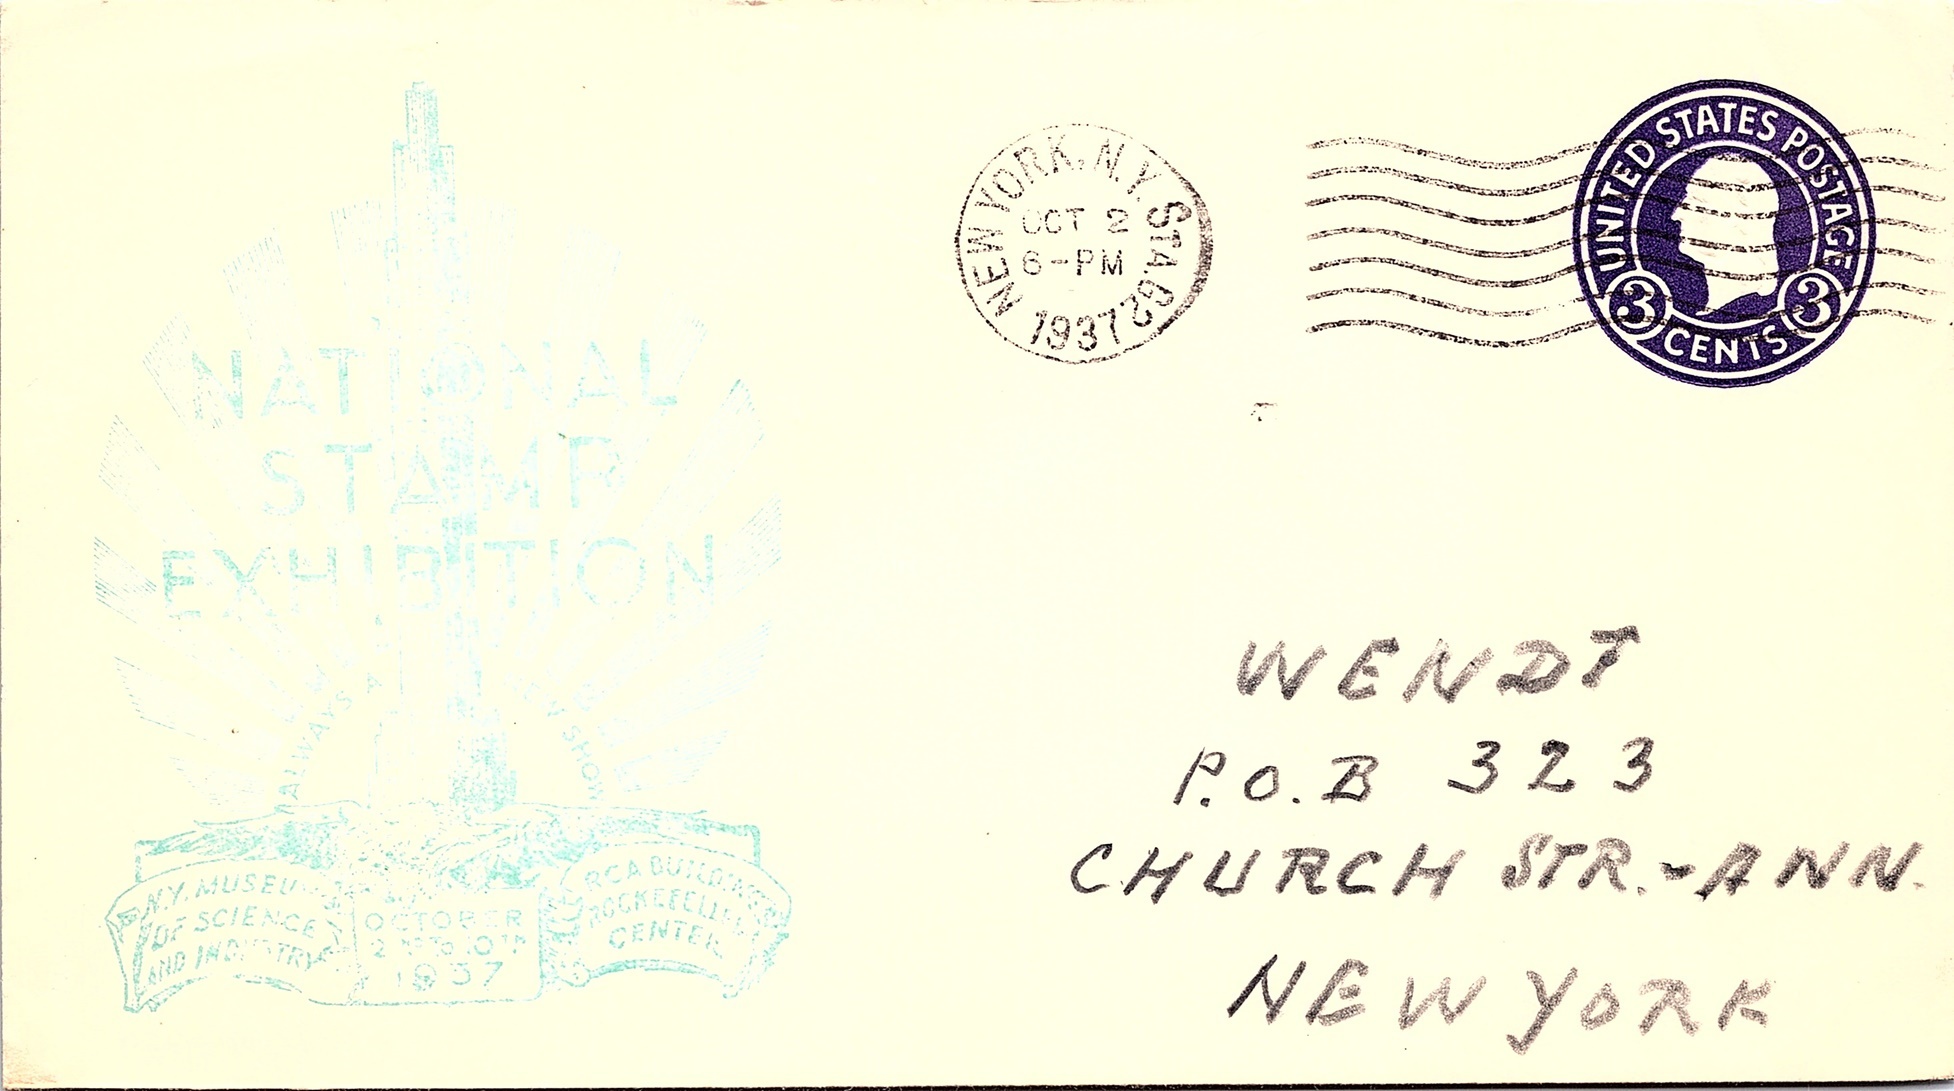 NATIONAL
STAMP
EXHIBITION
ALWAYS A SHOW
N.Y. MUSEUM
OF SCIENCE
AND INDUSTRY
OCTOBER
2ND TO 10TH
1937
RCA BUILDING
ROCKEFELLER
CENTER
NEW YORK, N.Y. STA. G2
OCT 2
6-PM
1937
UNITED STATES POSTAGE
3 CENTS 3
WENDT
P.O.B 323
CHURCH STR.-ANN.
NEW YORK